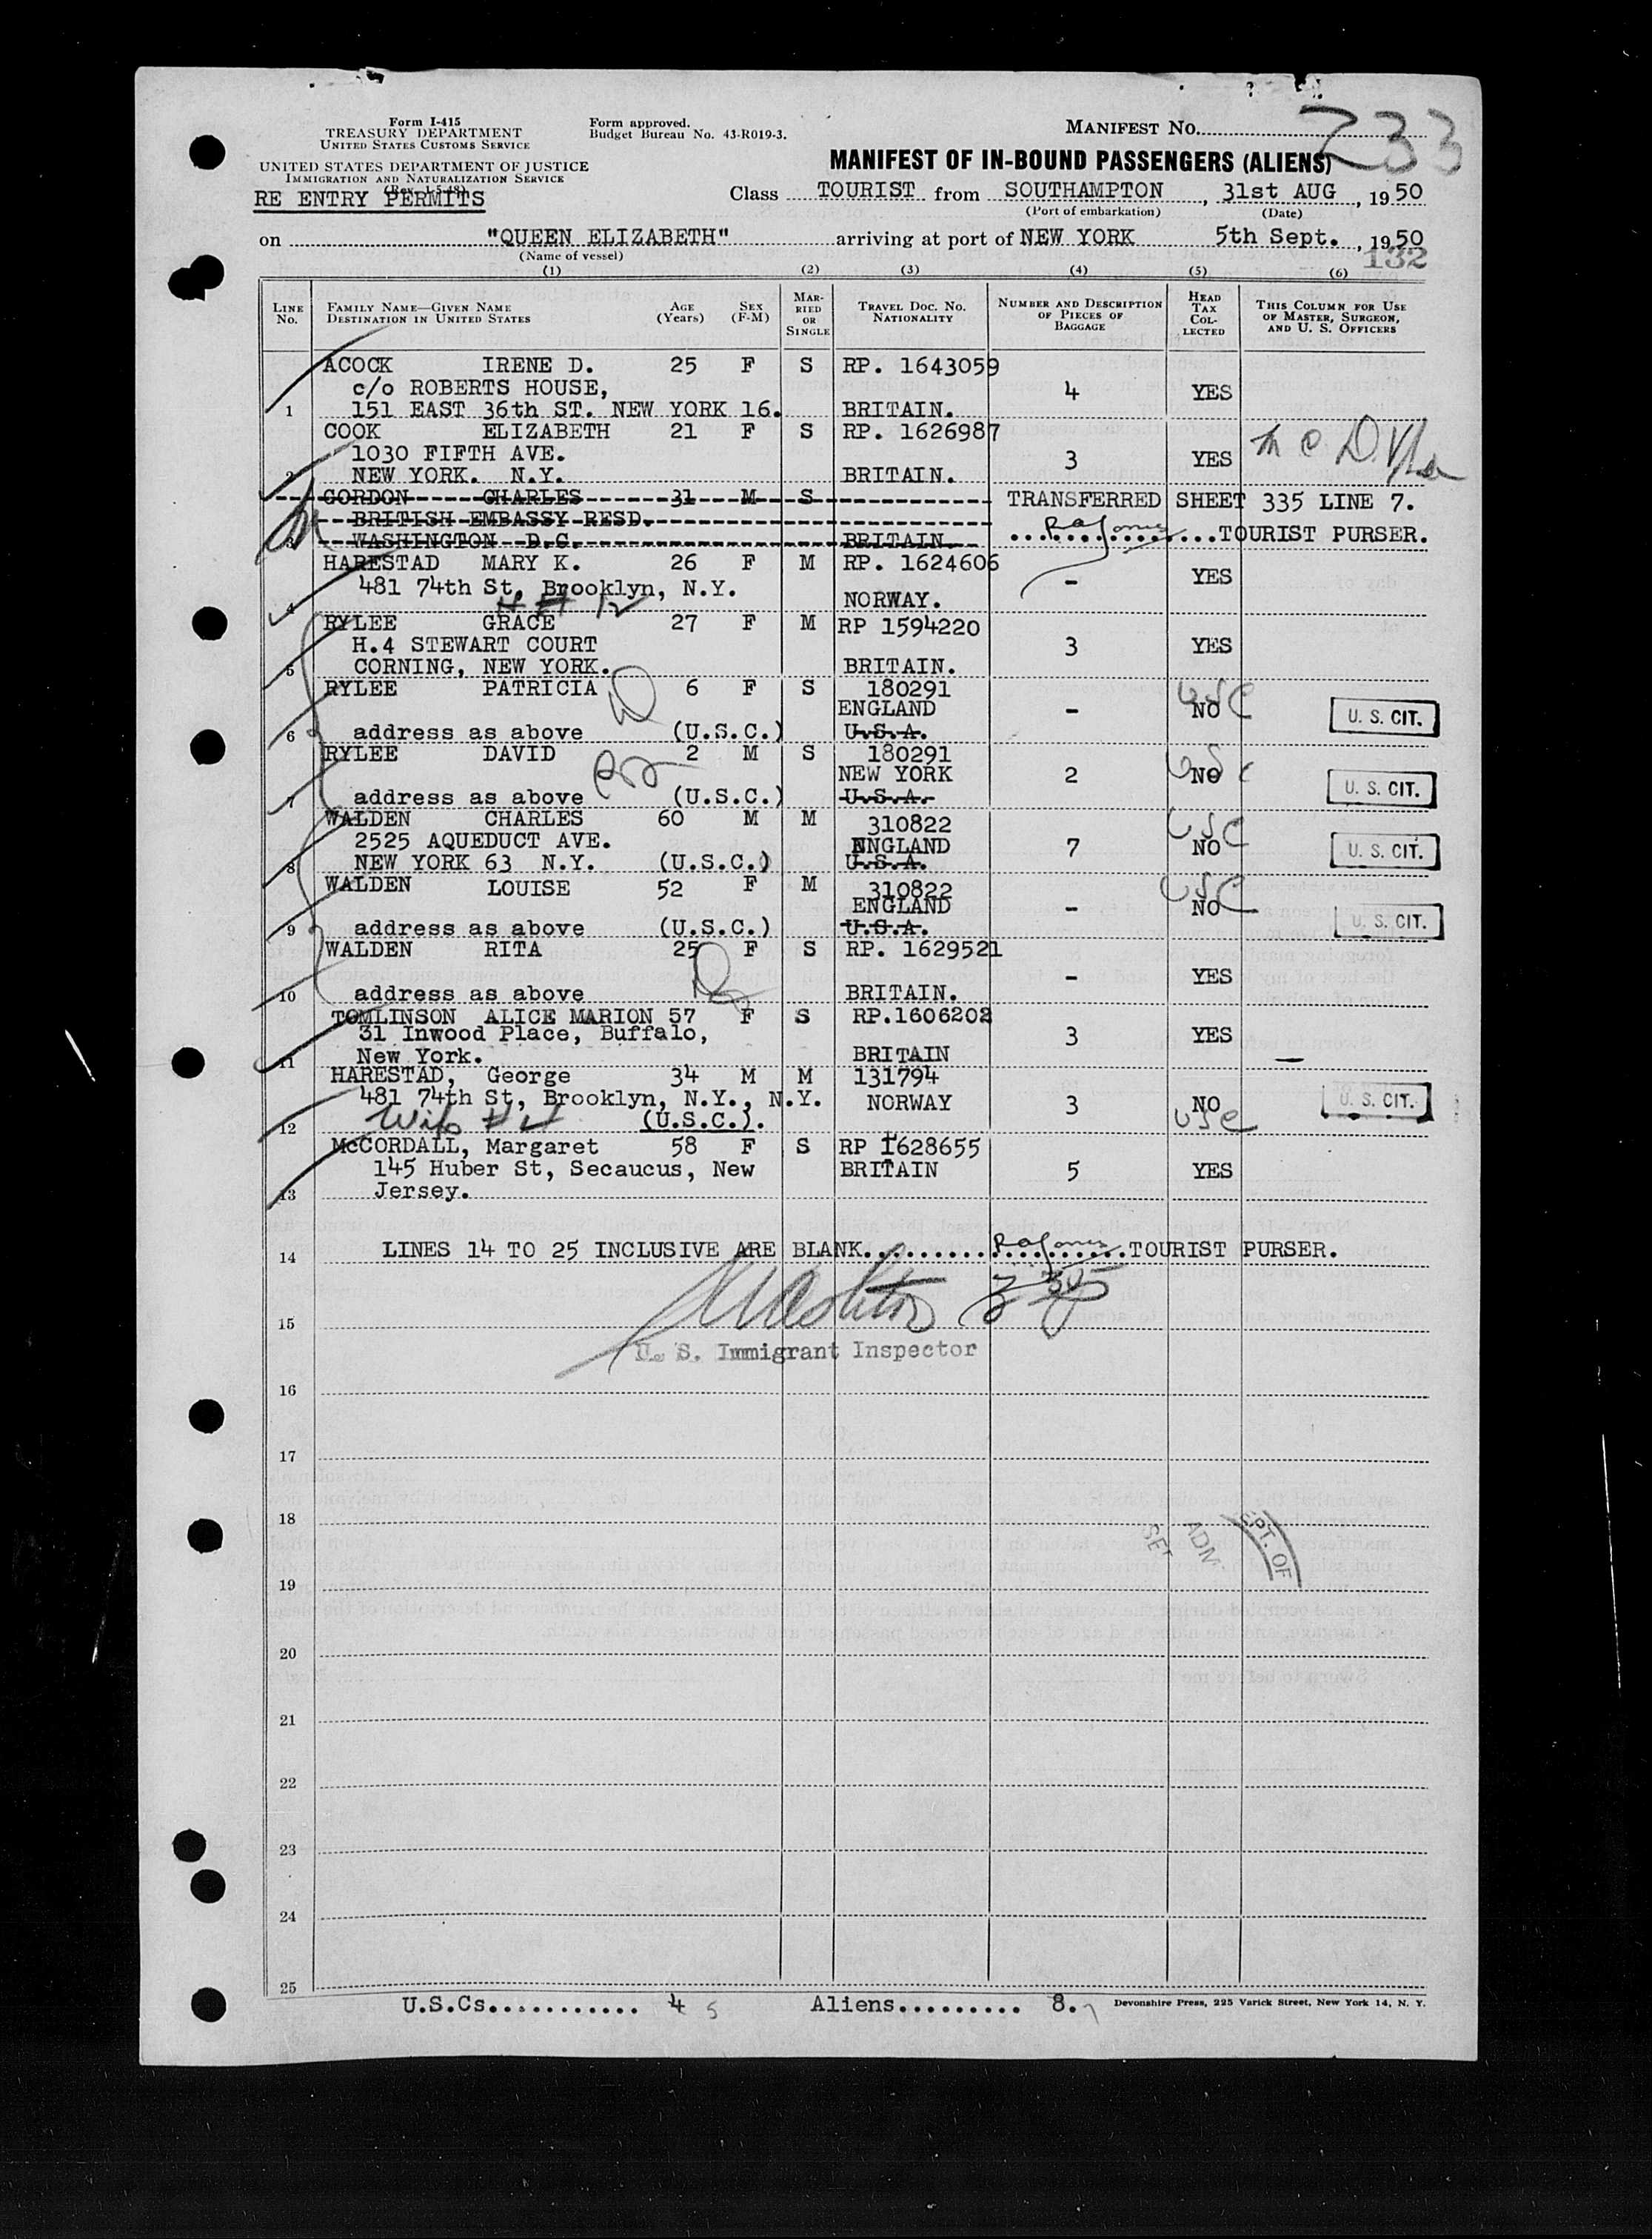 Form I-415
TREASURY DEPARTMENT
UNITED STATES CUSTOMS SERVICE
UNITED STATES DEPARTMENT OF JUSTICE
IMMIGRATION AND NATURALIZATION SERVICE
(Rev. 1-5-48)
RE ENTRY PERMITS
Form approved.
Budget Bureau No. 43-R019-3.
MANIFEST No. 233
MANIFEST OF IN-BOUND PASSENGERS (ALIENS)
Class TOURIST from SOUTHAMPTON, 31st AUG, 1950
(Port of embarkation) (Date)
on "QUEEN ELIZABETH" arriving at port of NEW YORK 5th Sept., 1950
(Name of vessel)
132
(1) (2) (3) (4) (5) (6)
LINE No. FAMILY NAME—GIVEN NAME DESTINATION IN UNITED STATES AGE (Years) SEX (F-M) MARRIED OR SINGLE TRAVEL DOC. No. NATIONALITY NUMBER AND DESCRIPTION OF PIECES OF BAGGAGE HEAD TAX COLLECTED THIS COLUMN FOR USE OF MASTER, SURGEON, AND U. S. OFFICERS
ACOCK IRENE D. 25 F S RP. 1643059
c/o ROBERTS HOUSE, 4 YES
1 151 EAST 36th ST. NEW YORK 16. BRITAIN.
COOK ELIZABETH 21 F S RP. 1626987
1030 FIFTH AVE. 3 YES
2 NEW YORK. N.Y. BRITAIN.
GORDON CHARLES 31 M S TRANSFERRED SHEET 335 LINE 7.
BRITISH EMBASSY RESD.
3 WASHINGTON D.C. BRITAIN. RA Jones TOURIST PURSER.
HARESTAD MARY K. 26 F M RP. 1624606
481 74th St, Brooklyn, N.Y. - YES
4 H # 12 NORWAY.
RYLEE GRACE 27 F M RP 1594220
H.4 STEWART COURT 3 YES
5 CORNING, NEW YORK. BRITAIN.
RYLEE PATRICIA 6 F S 180291
ENGLAND - NO USC U. S. CIT.
6 address as above (U.S.C.) U.S.A.
RYLEE DAVID 2 M S 180291
NEW YORK 2 NO USC U. S. CIT.
7 address as above (U.S.C.) U.S.A.
WALDEN CHARLES 60 M M 310822
2525 AQUEDUCT AVE. ENGLAND 7 NO USC U. S. CIT.
8 NEW YORK 63 N.Y. (U.S.C.) U.S.A.
WALDEN LOUISE 52 F M 310822
ENGLAND - NO USC U. S. CIT.
9 address as above (U.S.C.) U.S.A.
WALDEN RITA 25 F S RP. 1629521
- YES
10 address as above BRITAIN.
TOMLINSON ALICE MARION 57 F S RP.1606202
31 Inwood Place, Buffalo, 3 YES
11 New York. BRITAIN
HARESTAD, George 34 M M 131794
481 74th St, Brooklyn, N.Y., N.Y. NORWAY 3 NO U. S. CIT.
12 Wife #4 (U.S.C.). USC
McCORDALL, Margaret 58 F S RP 1628655
145 Huber St, Secaucus, New BRITAIN 5 YES
13 Jersey.
14 LINES 14 TO 25 INCLUSIVE ARE BLANK. RA Jones TOURIST PURSER.
15
U. S. Immigrant Inspector
16
17
18
19
20
21
22
23
24
25
U.S.Cs. 4 5 Aliens 8. 7 Devonshire Press, 225 Varick Street, New York 14, N. Y.